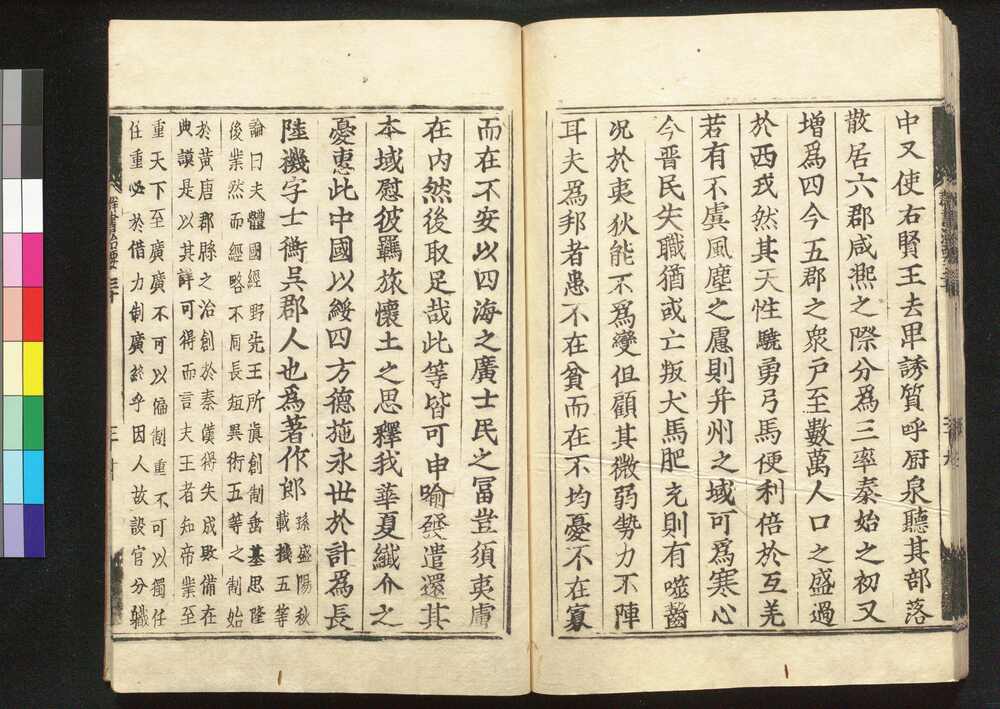 中又使右賢王去卑誘質呼厨泉聽其部落
散居六郡咸熙之際分爲三率泰始之初又
增爲四今五郡之衆戶至數萬人口之盛過
於西戎然其天性驍勇弓馬便利倍於互羌
若有不虞風塵之慮則并州之域可爲寒心
今晉民失職猶或亡叛犬馬肥充則有噬齧
况於夷狄能不爲變但顧其微弱勢力不陣
耳夫爲邦者患不在貧而在不均憂不在寡
而在不安以四海之廣士民之富豈須夷虜
在内然後取足哉此等皆可申喻發遣還其
本域慰彼羈旅懷土之思釋我華夏纖介之
憂惠此中國以綏四方德施永世於計爲長
陸機字士衡吳郡人也爲著作郎
孫盛陽秋
載機五等
論曰夫體國經野先王所眞創制垂基思隆
後業然而經略不同長短異術五等之制始
於黄唐郡縣之治創於秦漢得失成敗備在
典謨是以其詳可得而言夫王者知帝業至
重天下至廣廣不可以偏制重不可以獨任
任重必於借力制廣終乎因人故設官分職
群書治要三十